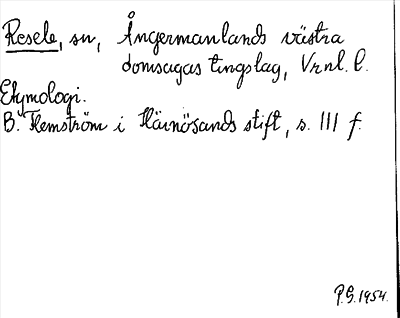 Resele, sn, Ångermanlands västra
domsagas tingslag, Vrnl. l.
Etymologi.
B. Flemström i Härnösands stift, s. 111 f.
P.G. 1954.